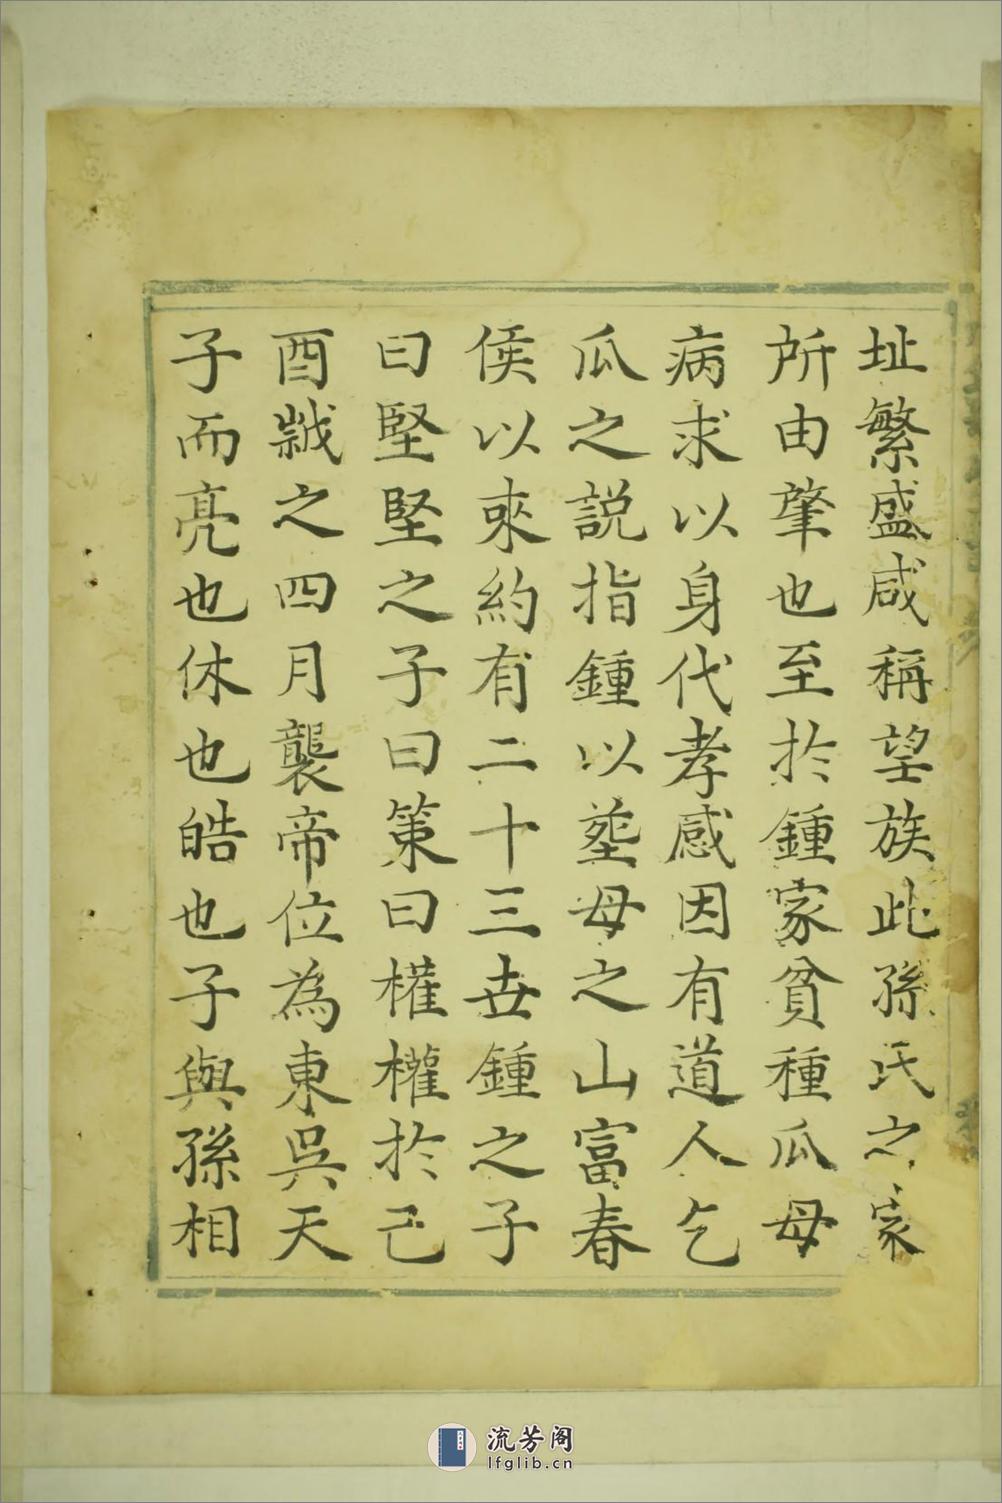 址繁盛咸稱望族此孫氏之家
所由肇也至於鍾家貧種瓜母
病求以身代孝感因有道人乞
瓜之説指鍾以塟母之山富春
侯以來約有二十三世鍾之子
曰堅堅之子曰策曰權權於己
酉歲之四月襲帝位為東吳天
子而亮也休也皓也子與孫相
流芳阁
lfglib.cn